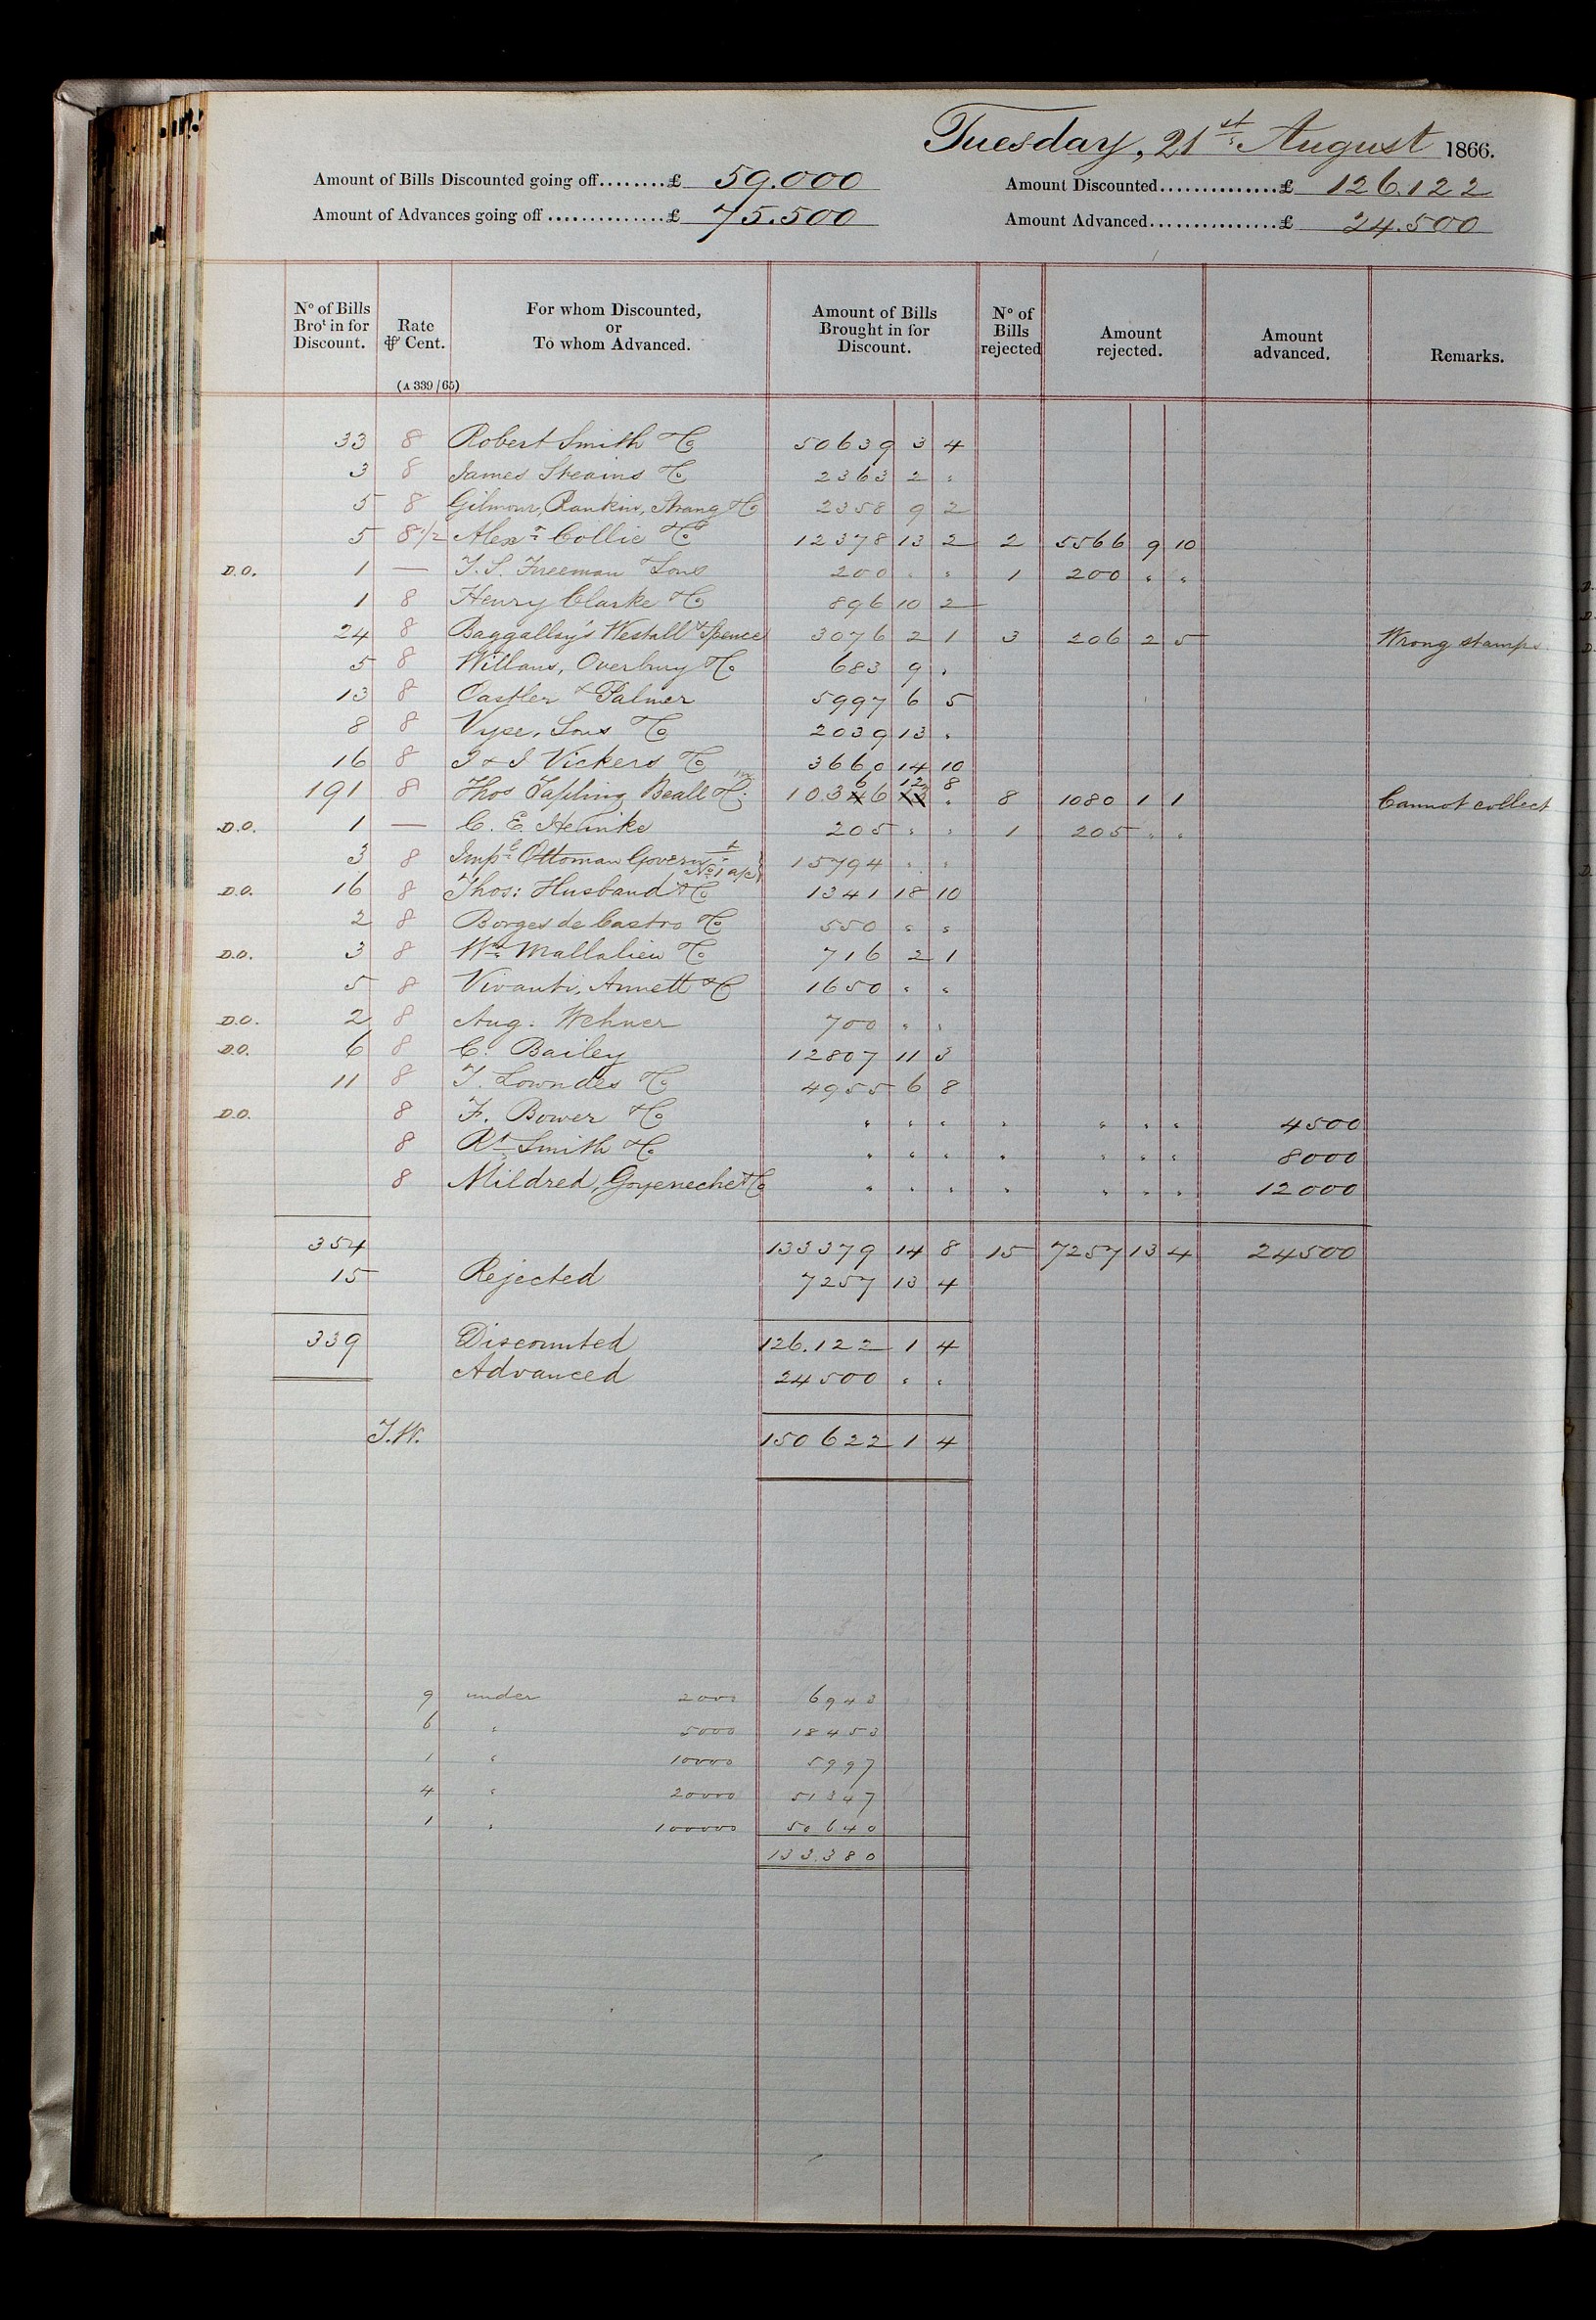 Tuesday, 21st August 1866.
Amount of Bills Discounted going off........£ 59.000 Amount Discounted...............£ 126.122
Amount of Advances going off..............£ 75.500 Amount Advanced................£ 24.500
No of Bills Brot in for Discount. Rate ⅌ Cent. (A 339/65) For whom Discounted, or To whom Advanced. Amount of Bills Brought in for Discount. No of Bills rejected Amount rejected. Amount advanced. Remarks.
33 8 Robert Smith & Co 50639 3 4
3 8 James Steains & Co 2363 2 "
5 8 Gilmour, Rankin, Strang & Co 2358 9 2
5 8 1/2 Alexr Collie & Co 12378 13 2 2 5566 9 10
D.O. 1 — T. S. Freeman & Sons 200 " " 1 200 " "
1 8 Henry Clarke & Co 896 10 2
24 8 Baggallay's Westall & Spence 3076 2 1 3 206 2 5 Wrong stamps
5 8 Willans, Overbury & Co 683 9 "
13 8 Castler & Palmer 5997 6 5
8 8 Vyse, Sons & Co 2039 13 "
16 8 J & J Vickers & Co 3660 14 10
191 8 Thos Tapling Beall & Co 10366 12 8 8 1080 1 1 Cannot collect
D.O. 1 — C. E. Heinke 205 " " 1 205 " "
3 8 Impl Ottoman Governt No 1 a/c 15794 " "
D.O. 16 8 Thos: Husband & Co 1341 18 10
2 8 Borges de Castro & Co 550 " "
D.O. 3 8 Wm Mallalieu & Co 716 2 1
5 8 Vivanti, Annett & Co 1650 " "
D.O. 2 8 Aug. Wehner 700 " "
D.O. 6 8 C. Bailey 12807 11 3
11 8 T. Lowndes & Co 4955 6 8
D.O. 8 F. Bower & Co " " " " " " " 4500
8 Rt Smith & Co " " " " " " " 8000
8 Mildred, Goyeneche & Co " " " " " " " 12000
354 133379 14 8 15 7257 13 4 24500
15 Rejected 7257 13 4
339 Discounted 126.122 1 4
Advanced 24500 " "
T.W. 150622 1 4
9 under 2000 6943
6 " 5000 18453
1 " 10000 5997
4 " 20000 51347
1 " 100000 50640
133.380